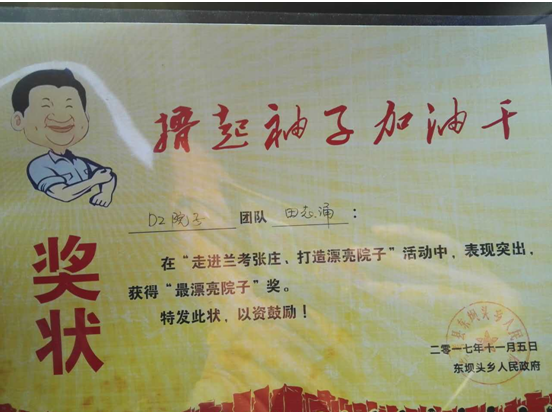 撸起袖子加油干
D2院子 团队 田志涌：
奖状
在“走进兰考张庄、打造漂亮院子”活动中，表现突出，
获得“最漂亮院子”奖。
特发此状，以资鼓励！
二零一七年十一月五日
东坝头乡人民政府